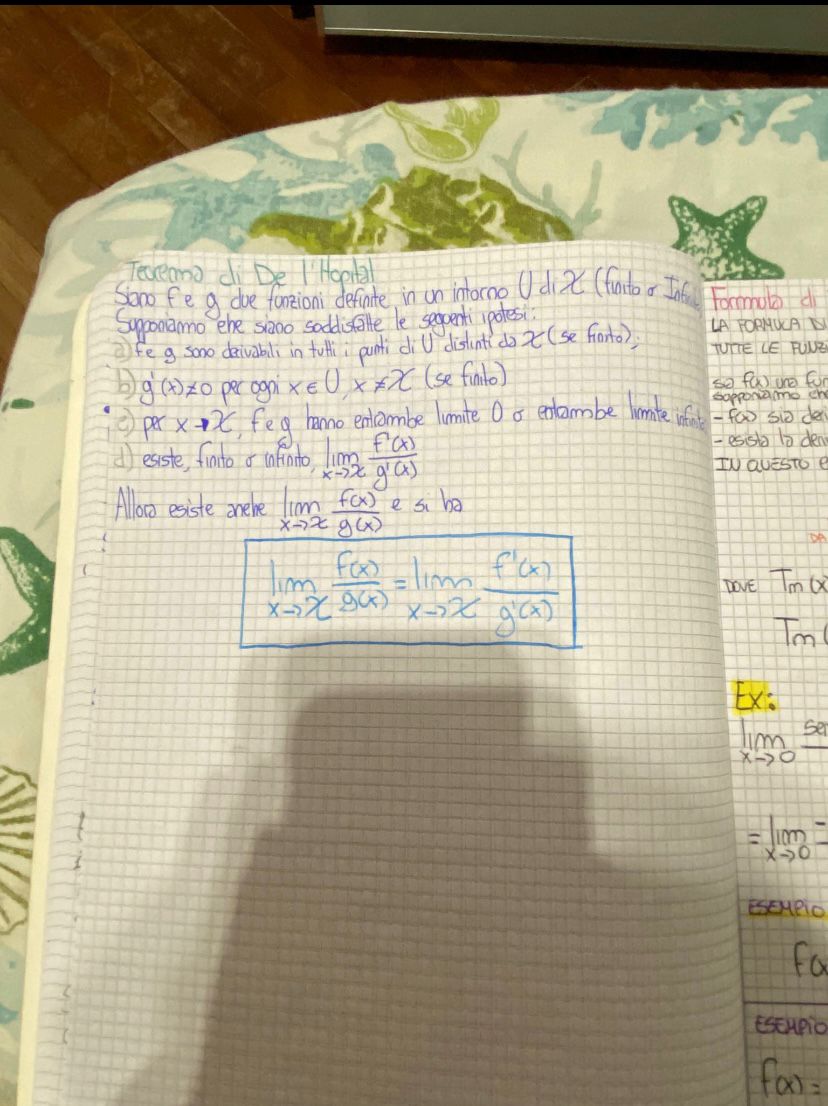 Teorema di De l'Hopital
Siano f e g due funzioni definite in un intorno U di x (finito o Infini
Supponiamo che siano soddisfatte le seguenti ipotesi:
a) f e g sono derivabili in tutti i punti di U distinti da x (se finito);
b) g'(x) ≠ 0 per ogni x ∈ U, x ≠ x (se finito)
c) per x → x, f e g hanno entrambe limite 0 o entrambe limite infinito
d) esiste, finito o infinito, lim x→x f'(x)/g'(x)
Allora esiste anche lim x→x f(x)/g(x) e si ha
lim x→x f(x)/g(x) = lim x→x f'(x)/g'(x)
Formula di
LA FORMULA DI
TUTTE LE FUNZI
sia f(x) una fun
supponiamo che
- f(x) sia deri
- esista la deriv
IN QUESTO
DA
DOVE Tm(x
Tm(
Ex:
lim x→0 sen
= lim x→0
ESEMPIO
f(x
ESEMPIO
f(x) =